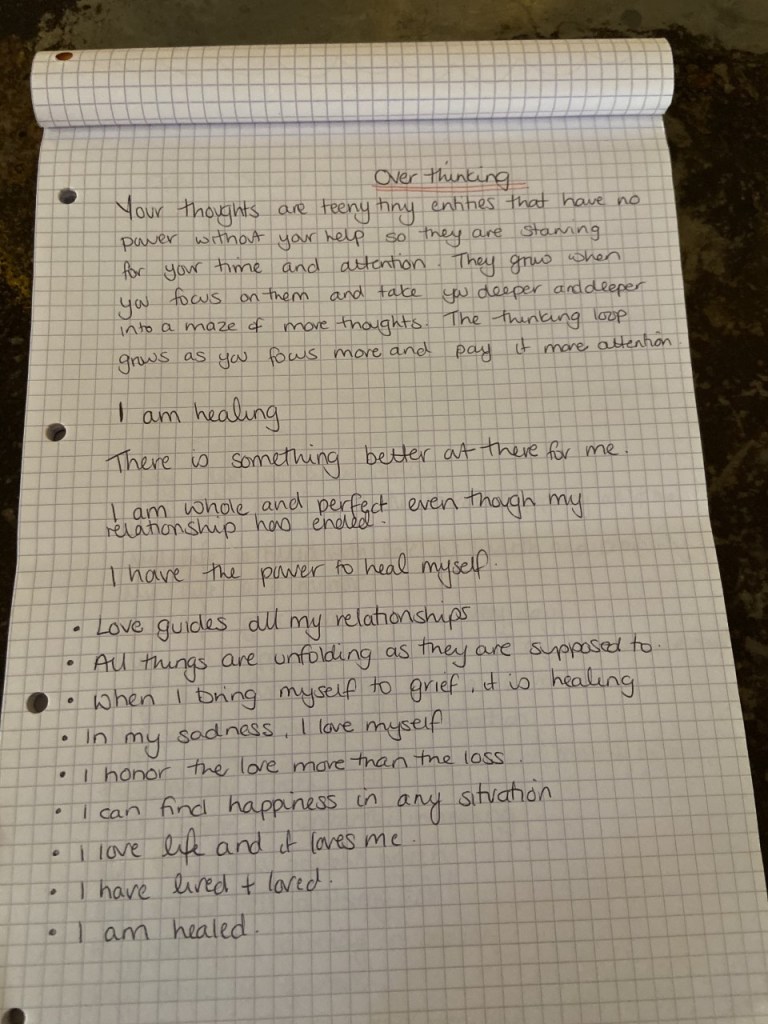 Over thinking
Your thoughts are teeny tiny entities that have no
power without your help so they are starving
for your time and attention. They grow when
you focus on them and take you deeper and deeper
into a maze of more thoughts. The thinking loop
grows as you focus more and pay it more attention
I am healing
There is something better out there for me.
I am whole and perfect even though my
relationship has ended.
I have the power to heal myself.
• Love guides all my relationships
• All things are unfolding as they are supposed to.
• When I bring myself to grief, it is healing
• In my sadness, I love myself
• I honor the love more than the loss.
• I can find happiness in any situation
• I love life and it loves me.
• I have lived + loved.
• I am healed.